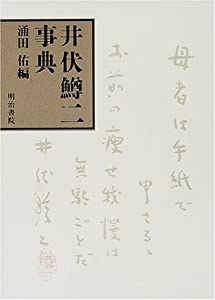 井伏鱒二
事典
涌田 佑編
明治書院
母者は手紙で
申さるゝ
お前の痩せ我慢は
無駄ごとだ
井伏鱒二